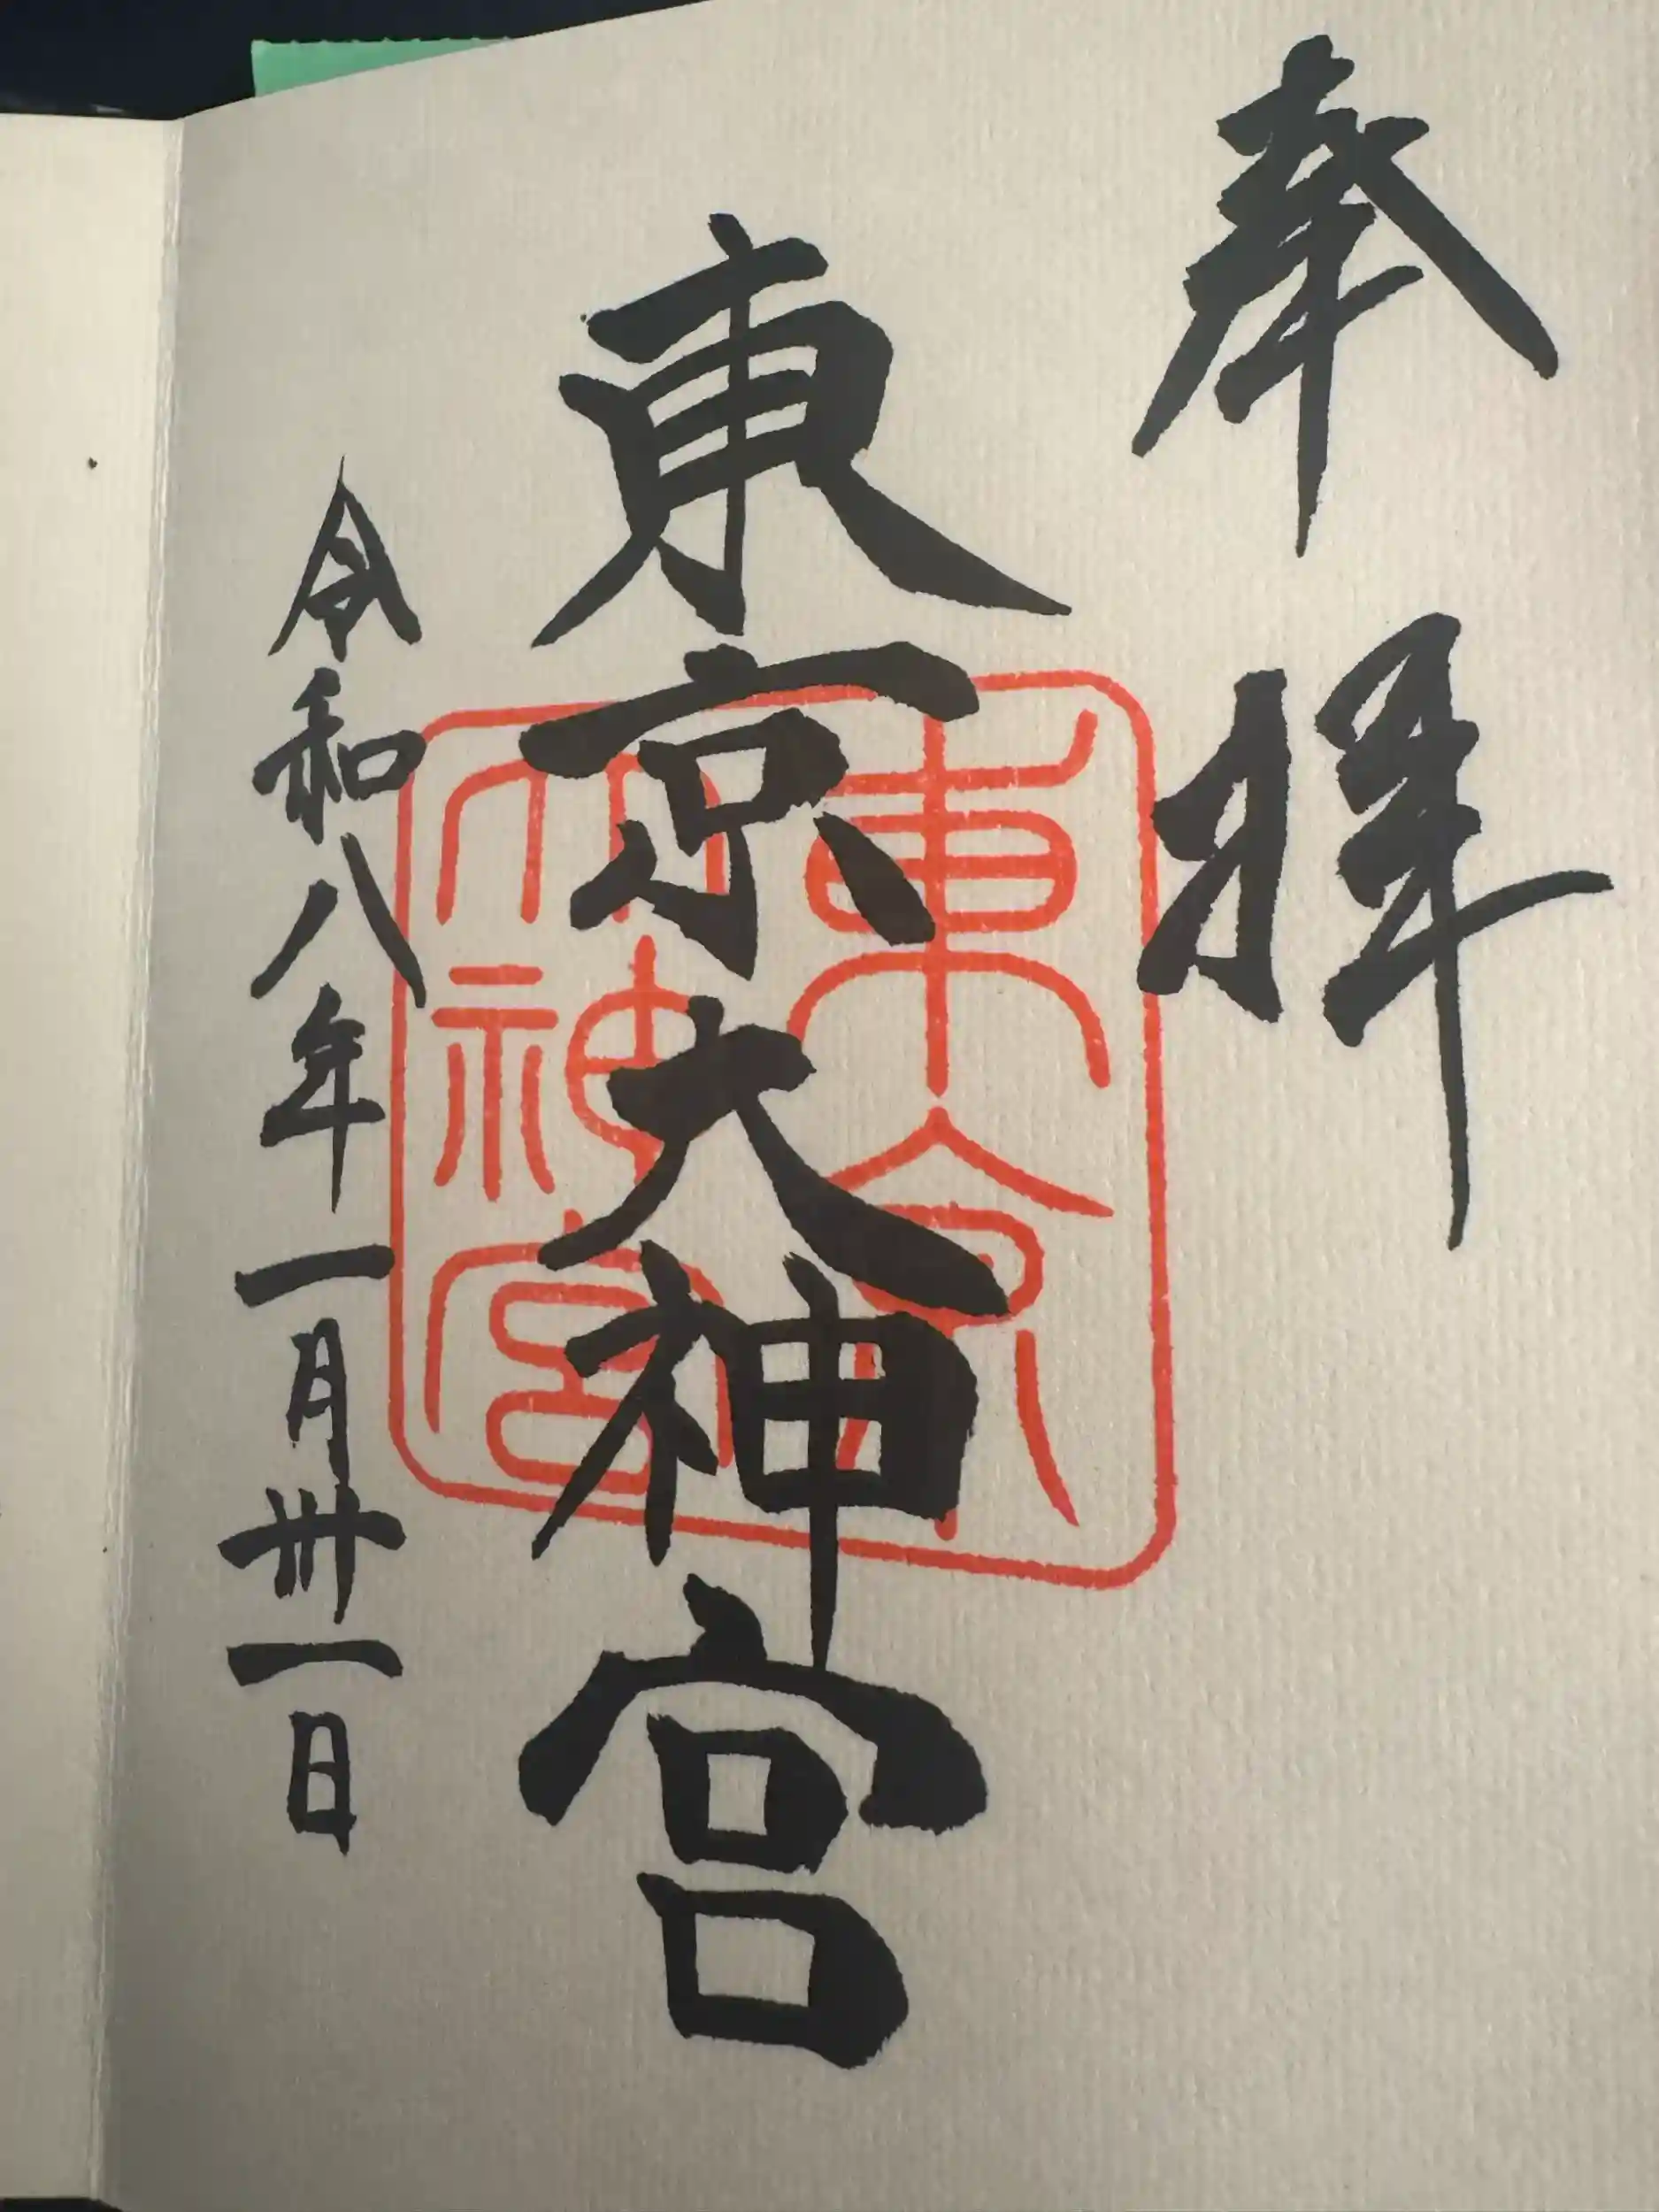 奉拝
東京大神宮
東京
大神宮
令和八年一月卅一日